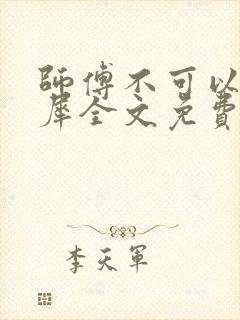 師傅不可以
犀全文免費
李天軍